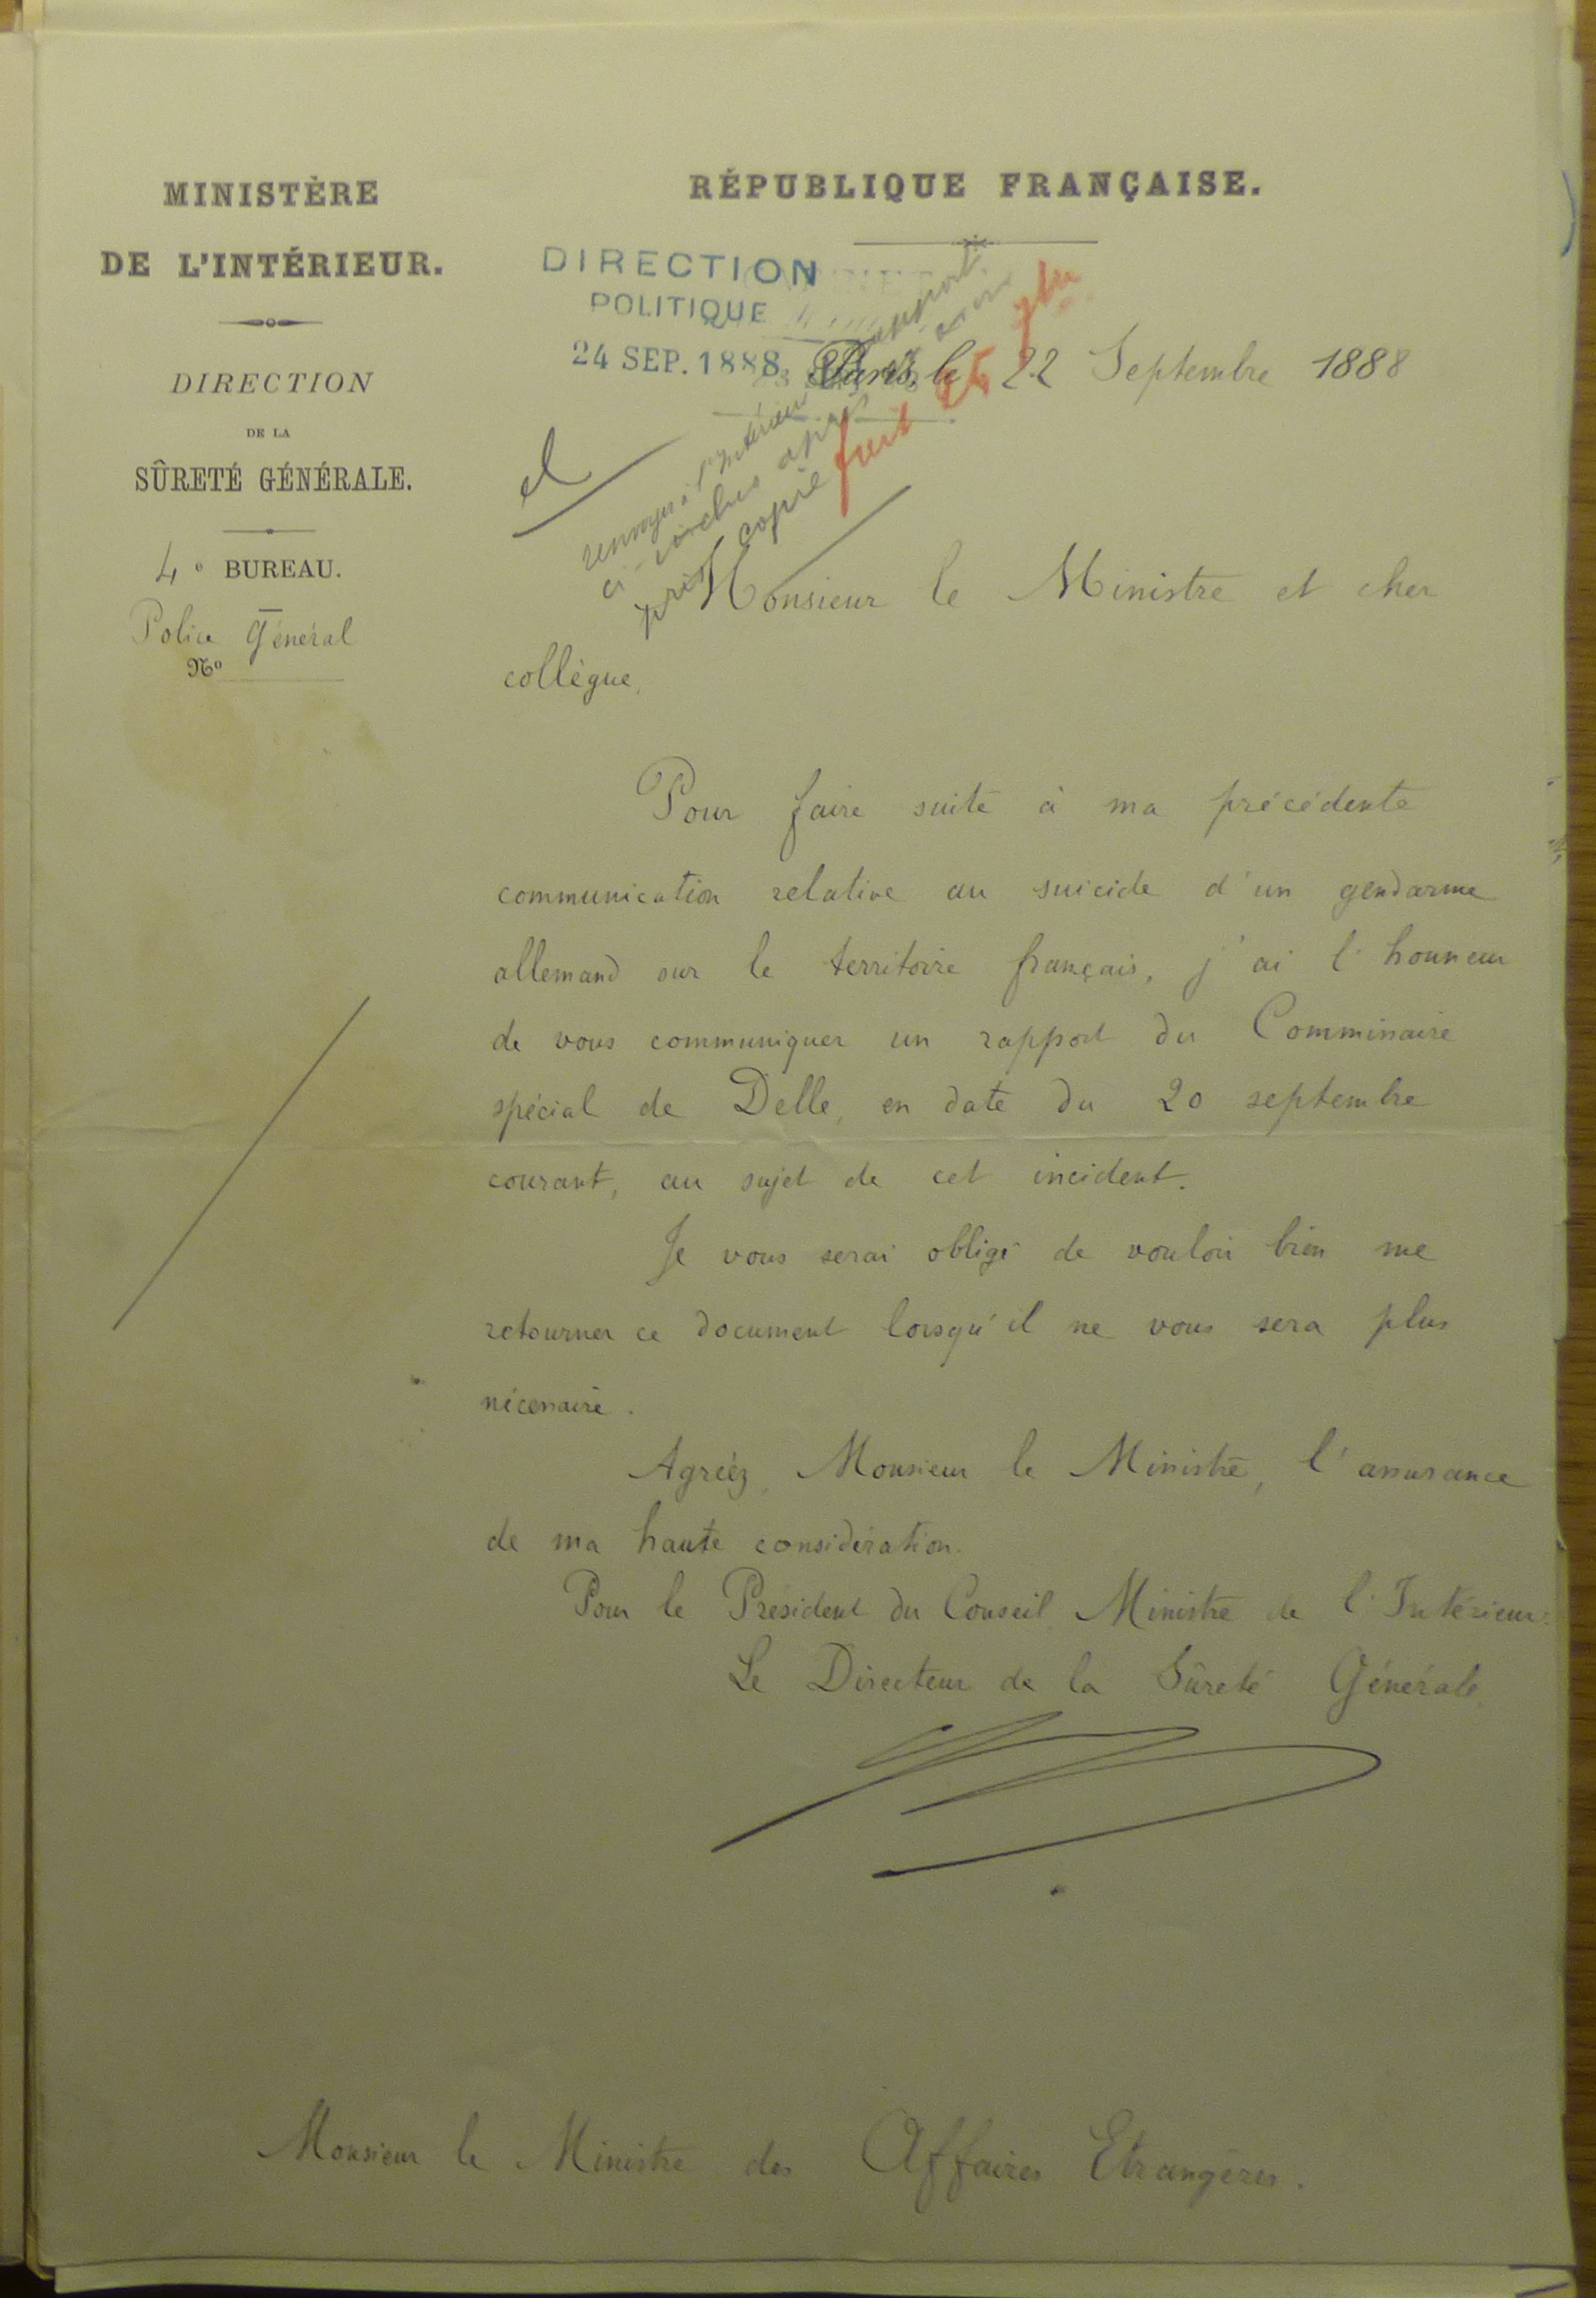 MINISTÈRE
DE L'INTÉRIEUR.
DIRECTION
DE LA
SÛRETÉ GÉNÉRALE.
4e BUREAU.
Police Général
No
RÉPUBLIQUE FRANÇAISE.
DIRECTION
POLITIQUE
24 SEP. 1888
Paris, le 22 Septembre 1888
renvoyer à l'Intérieur rapport
ci-inclus après en avoir
pris copie
fait 25 7bre
Monsieur le Ministre et cher
collègue,
Pour faire suite à ma précédente
communication relative au suicide d'un gendarme
allemand sur le territoire français, j'ai l'honneur
de vous communiquer un rapport du Commissaire
spécial de Delle, en date du 20 septembre
courant, au sujet de cet incident.
Je vous serai obligé de vouloir bien me
retourner ce document lorsqu'il ne vous sera plus
nécessaire.
Agréez, Monsieur le Ministre, l'assurance
de ma haute considération.
Pour le Président du Conseil Ministre de l'Intérieur:
Le Directeur de la Sûreté Générale,
Monsieur le Ministre des Affaires Etrangères.